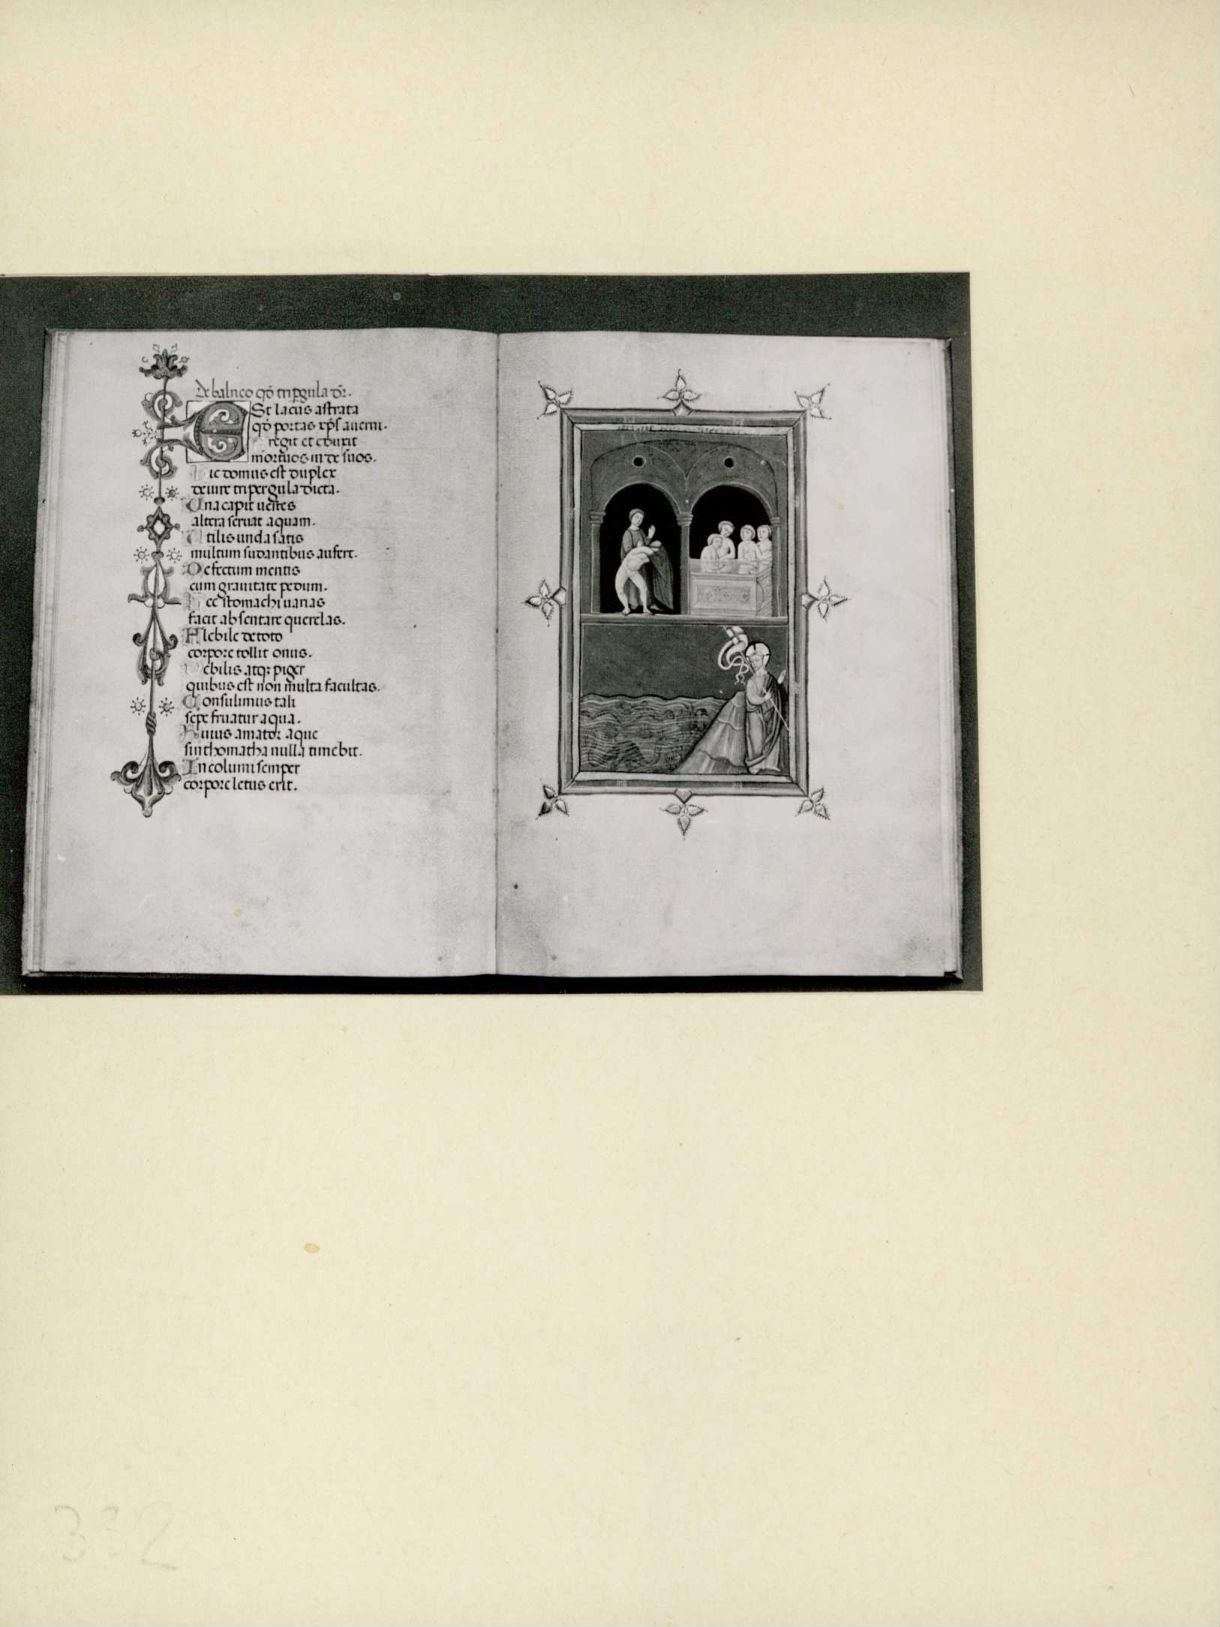 De balneo qd tripgula dr.
ESt lacus astrata
qd portas xps auerni.
regit et eduxit
mortuos in de suos.
ic domus est duplex
de iure tripergula dicta.
Una capit uestes
altera seruat aquam.
Utilis unda satis
multum sudantibus aufert.
Defectum mentis
cum grauitate pedum.
ec stomachi uarias
facit absentare querelas.
Flebile de toto
corpore tollit onus.
Debilis atq; piger
quibus est non multa facultas.
Consulimus tali
sepe fruatur aqua.
Huius amator aque
sinthomatha nulla timebit.
Incolumi semper
corpore letus erit.
332